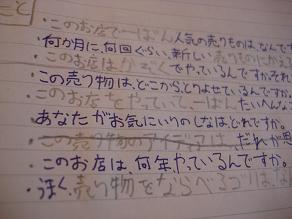 こと
・このお店で一ばん人気の売りものは、なんです
・何か月に、何回ぐらい、新しい売りものにかえ
・このお店はかぞくでやっているんですかそれ
・この売り物は、どこから、とりよせているんですか。
・このお店をやっていて、一ばんたいへんな
あなたがお気にいりのしなは、どれですか。
・この売り物のアイディアは、だれが思
・このお店は、何年、やっているんですか。
・うまく、売り物をならべるコツは、なん